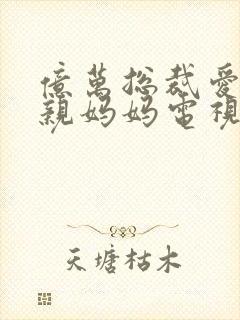 億萬總裁愛
親媽媽電視
天塘枯木